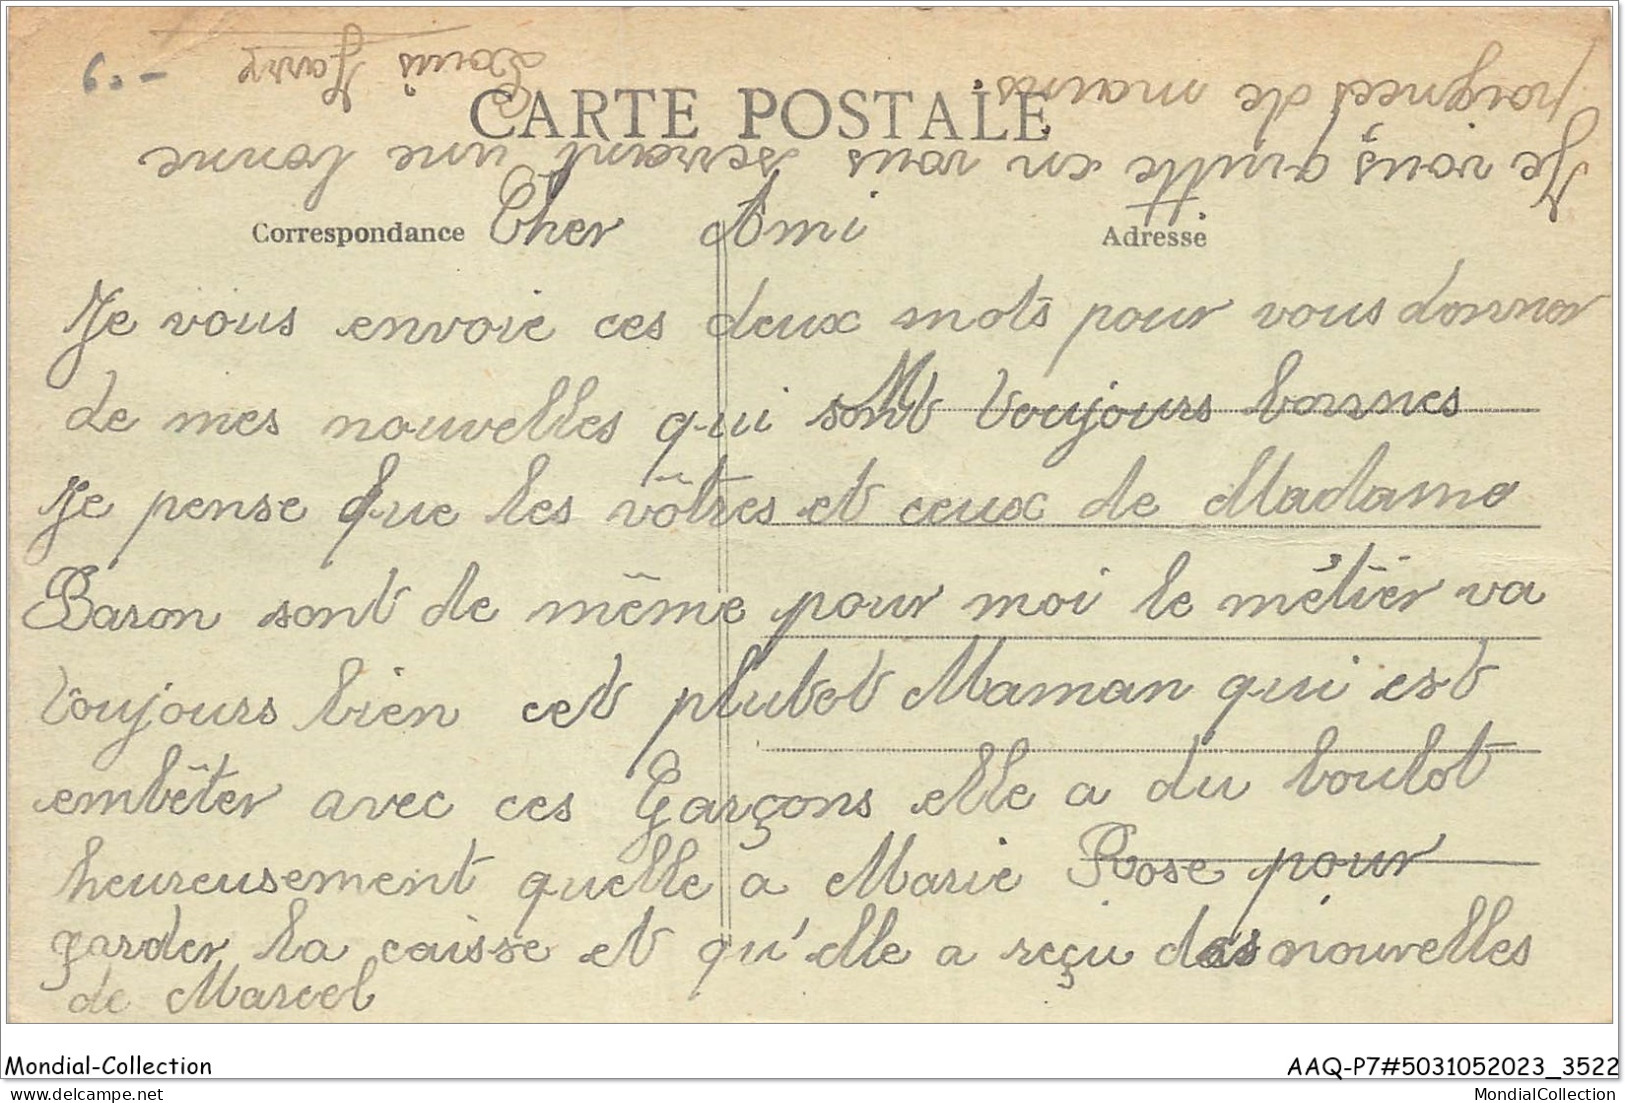 CARTE POSTALE
Correspondance
Adresse
Cher Ami
Je vous envoie ces deux mots pour vous donner
de mes nouvelles qui sont toujours bonnes
Je pense que les vôtres et ceux de Madame
Baron sont de même pour moi le métier va
toujours bien cet plutot Maman qui est
embêter avec ces Garçons elle a du boulot
heureusement quelle a Marie Rose pour
garder la caisse et qu'elle a reçu des nouvelles
de Marcel
Je vous quitte en vous serrant une bonne
poignées de mains
Louis
Mondial-Collection
AAQ-P7#5031052023_3522
delcampe.net
MondialCollection